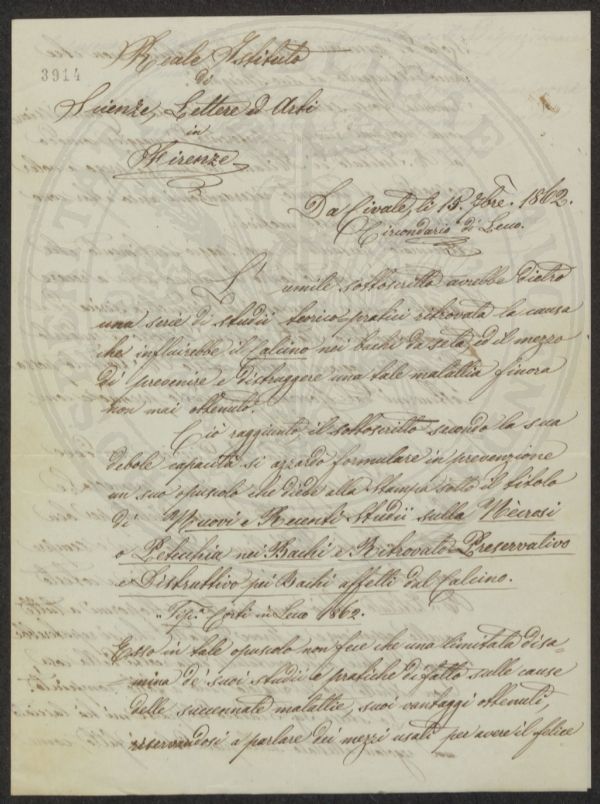 Reale Istituto
3914
di
Scienze, Lettere ed Arti
in
Firenze
Da Civate, li 15. 7bre. 1862.
Circondario di Lecco.
L' umile sottoscritto avrebbe dietro
una serie di studii teorico-pratici ritrovata la causa
che influirebbe il Calcino nei bachi da seta ed il mezzo
di prevenire e distruggere una tale malattia finora
non mai ottenuto.
Ciò raggiunto il sottoscritto secondo la sua
debole capacità si azzardò formulare in prevenzione
un suo opuscolo che diede alla Stampa sotto il titolo
di Nuovi e Recenti Studii sulla Nècrosi
o Petecchia nei Bachi e Ritrovato Preservativo
e Distruttivo pei Bachi affetti dal Calcino.
"Tip.a Corti in Lecco 1862.
Esso in tale opuscolo non fece che una limitata disa=
mina de' suoi studii e pratiche di fatto sulle cause
delle succennate malattie, suoi vantaggi ottenuti,
riservandosi a parlare dei mezzi usati per avere il felice